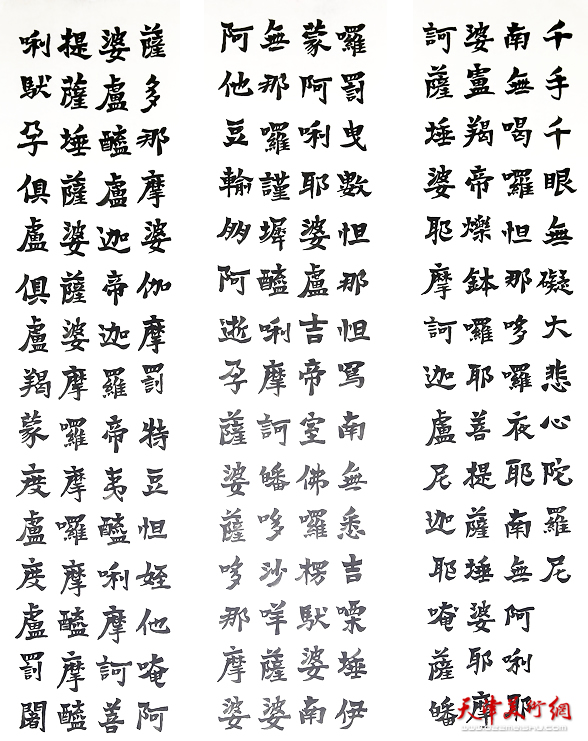 千手千眼無礙大悲心陀羅尼
南無喝囉怛那哆囉夜耶南無阿唎耶
婆盧羯帝爍鉢囉耶菩提薩埵婆耶摩
訶薩埵婆耶摩訶迦盧尼迦耶唵薩皤
囉罰曳數怛那怛寫南無悉吉嘌埵伊
蒙阿唎耶婆盧吉帝室佛囉楞馱婆南
無那囉謹墀醯唎摩訶皤哆沙咩薩婆
阿他豆輸朋阿逝孕薩婆薩哆那摩婆
薩多那摩婆伽摩罰特豆怛姪他唵阿
婆盧醯盧迦帝迦羅帝夷醯唎摩訶菩
提薩埵薩婆薩婆摩囉摩囉摩醯摩醯
唎馱孕俱盧俱盧羯蒙度盧度盧罰闍
天津美術網